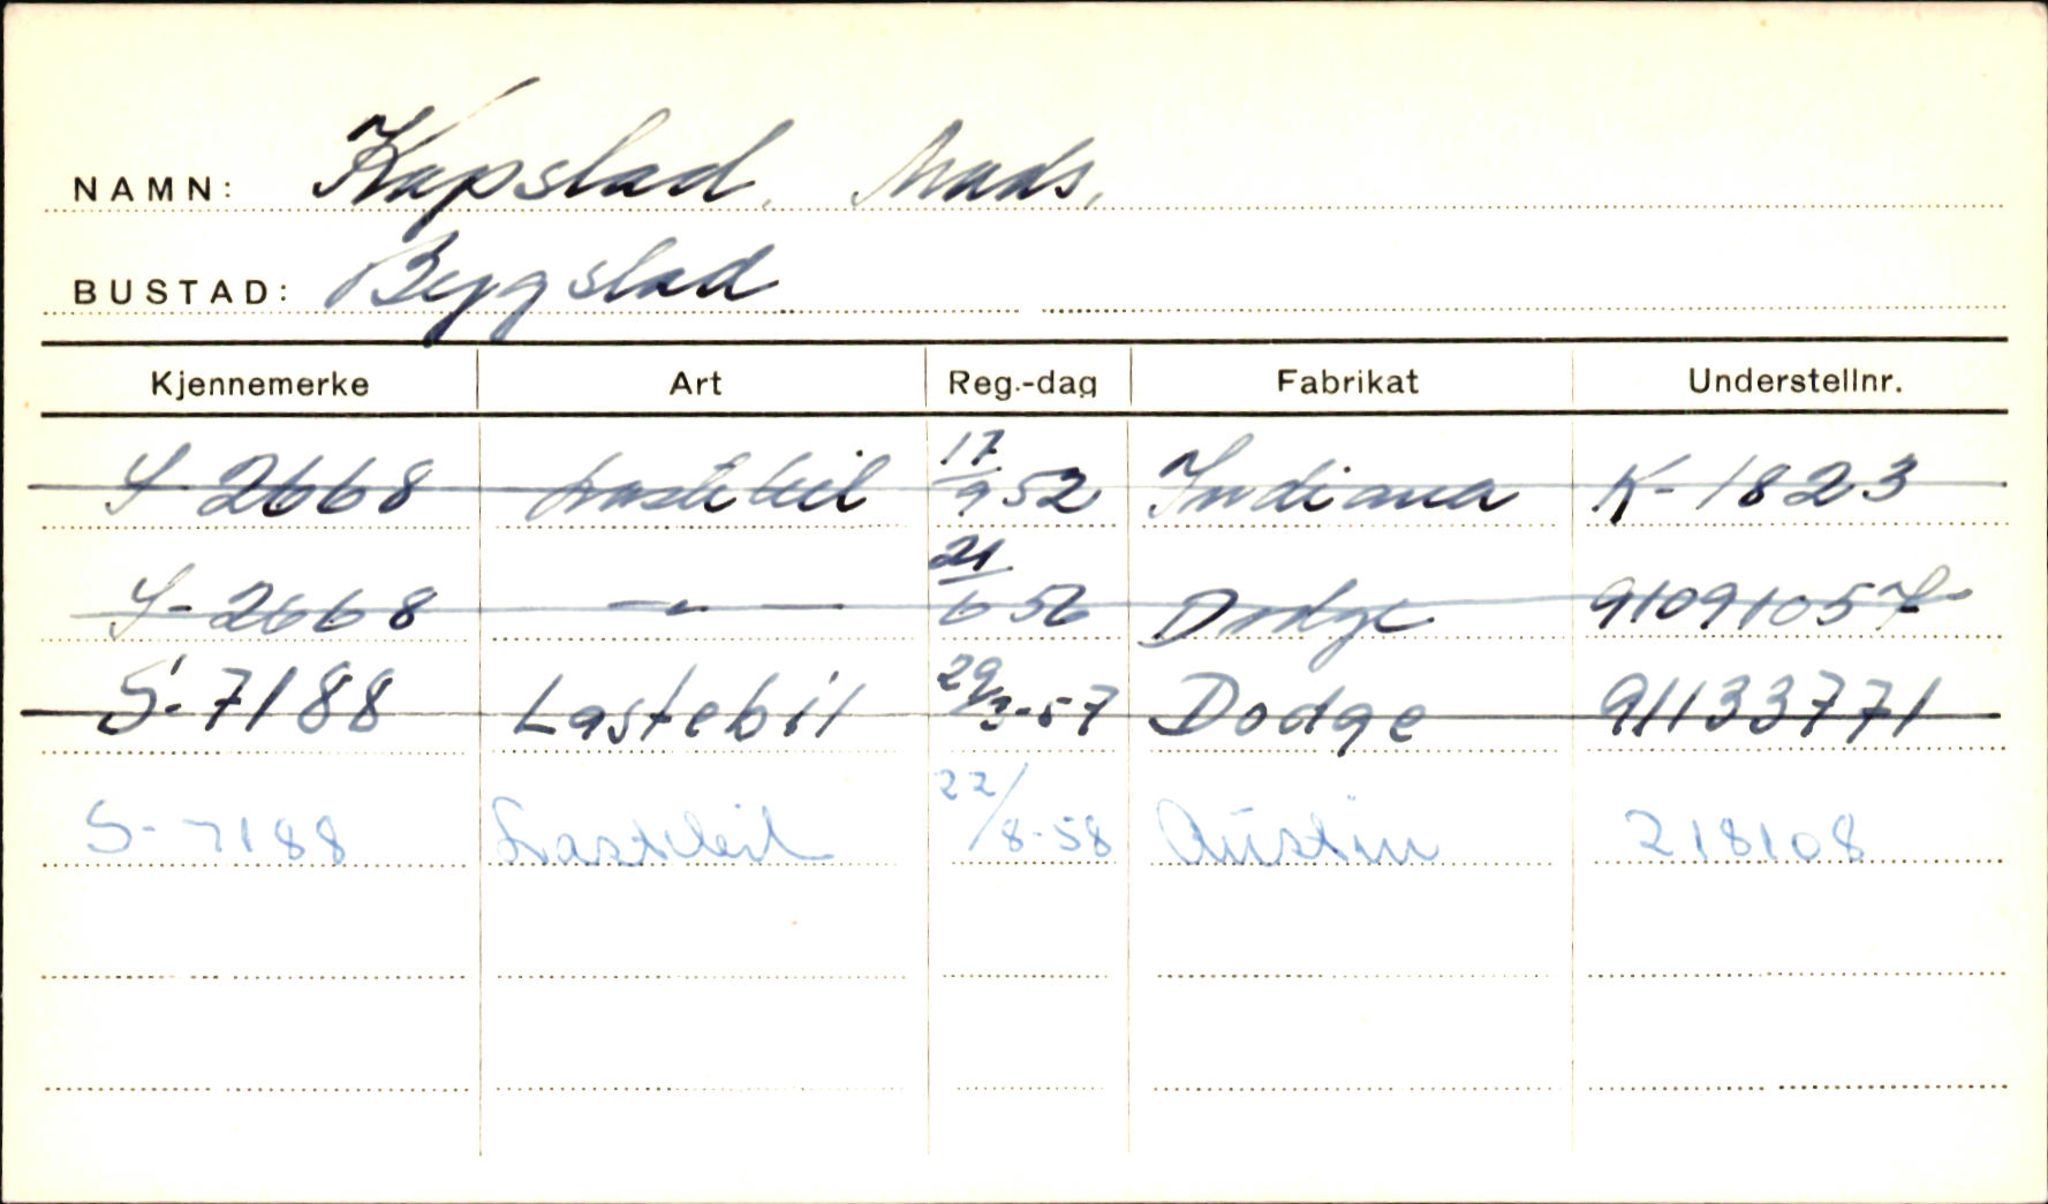 NAMN: Kapstad, Mads,
BUSTAD: Bygstad
Kjennemerke Art Reg.-dag Fabrikat Understellnr.
S-2668 Lastebil 17/9 52 Indiana K-1823
S-2668 —"— 21/6 56 Dodge 91091057
S-7188 Lastebil 29/3-57 Dodge 91133771
S-7188 Lastebil 22/8-58 Austin 218108